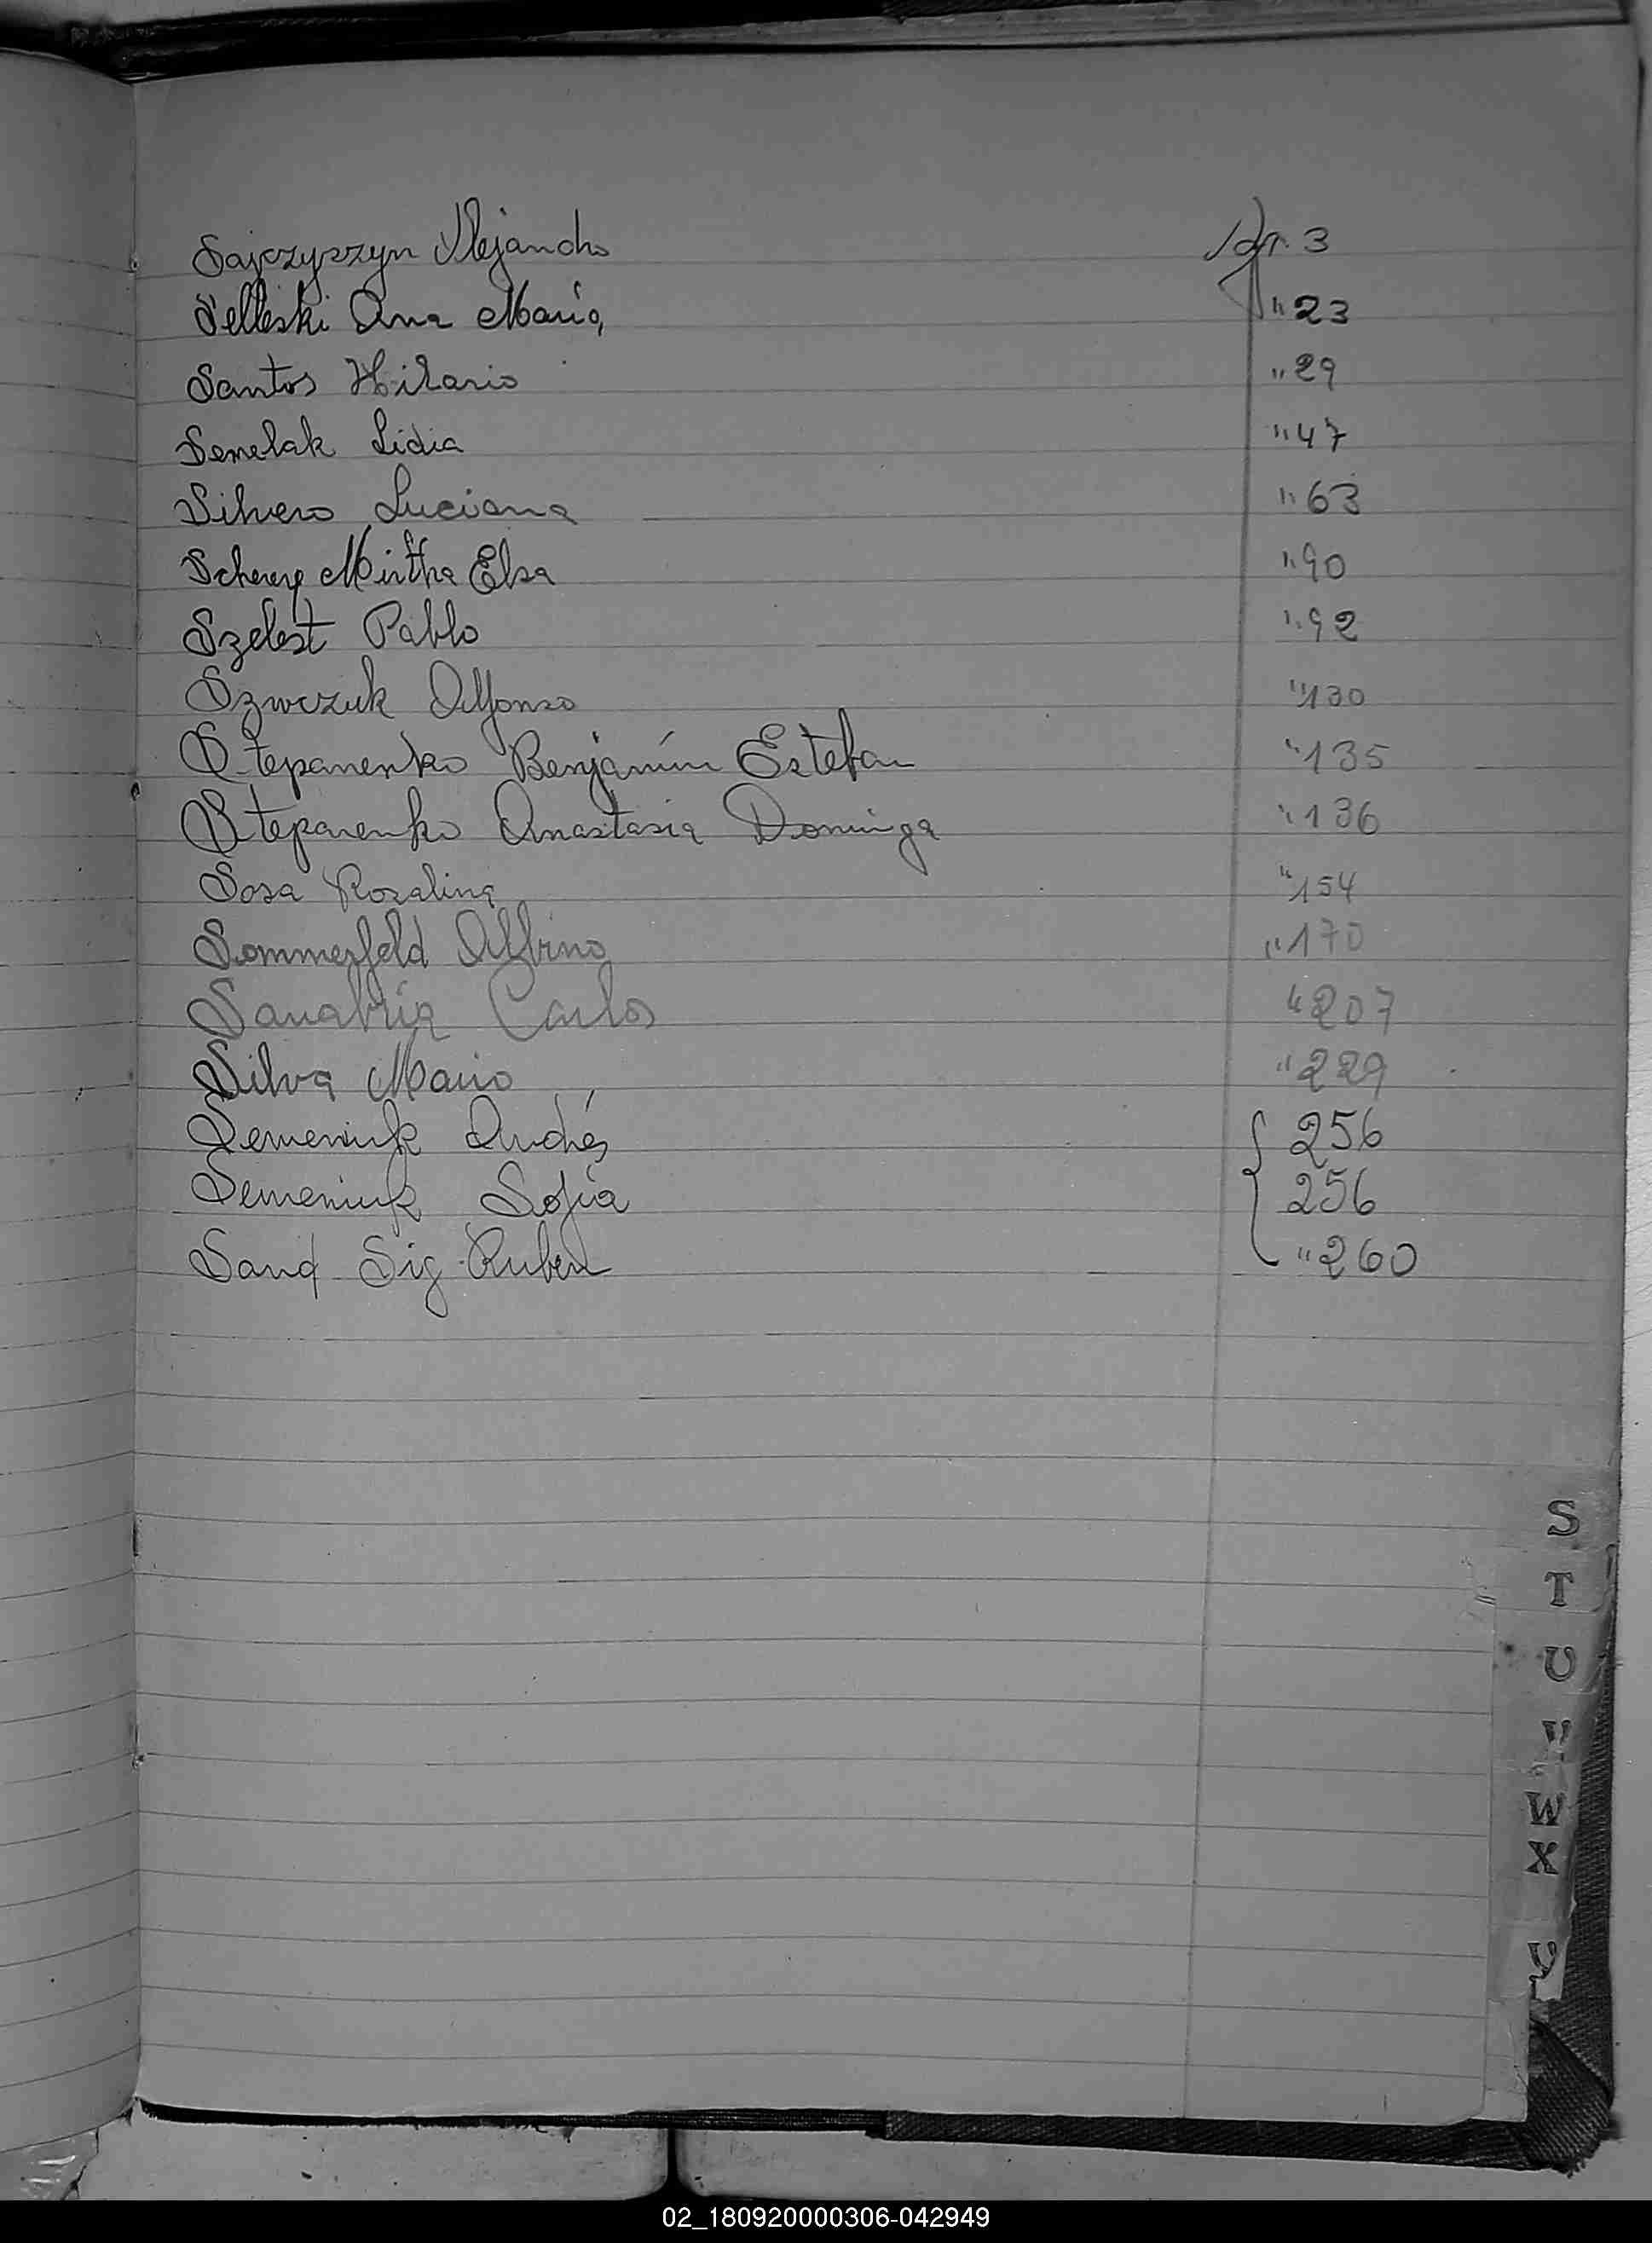 Sajczyszyn Alejandro Pág. 3
Selleski Ana Maria " 23
Santos Hilario " 29
Semelak Lidia " 47
Silvero Luciana " 63
Mirtha Elsa " 90
Szelest Pablo " 92
Szwczuk Alfonso " 130
Stepanenko Benjamín Esteban " 135
Stepanenko Anastasia Dominga " 136
Sosa Rosalina " 154
Sommerfeld Albino " 170
Sanabria Carlos " 207
Silva Mario " 229
Semeniuk Andrés 256
Semeniuk Sofía 256
Sand Sig Ruben " 260
S
T
U
W
X
02_180920000306-042949